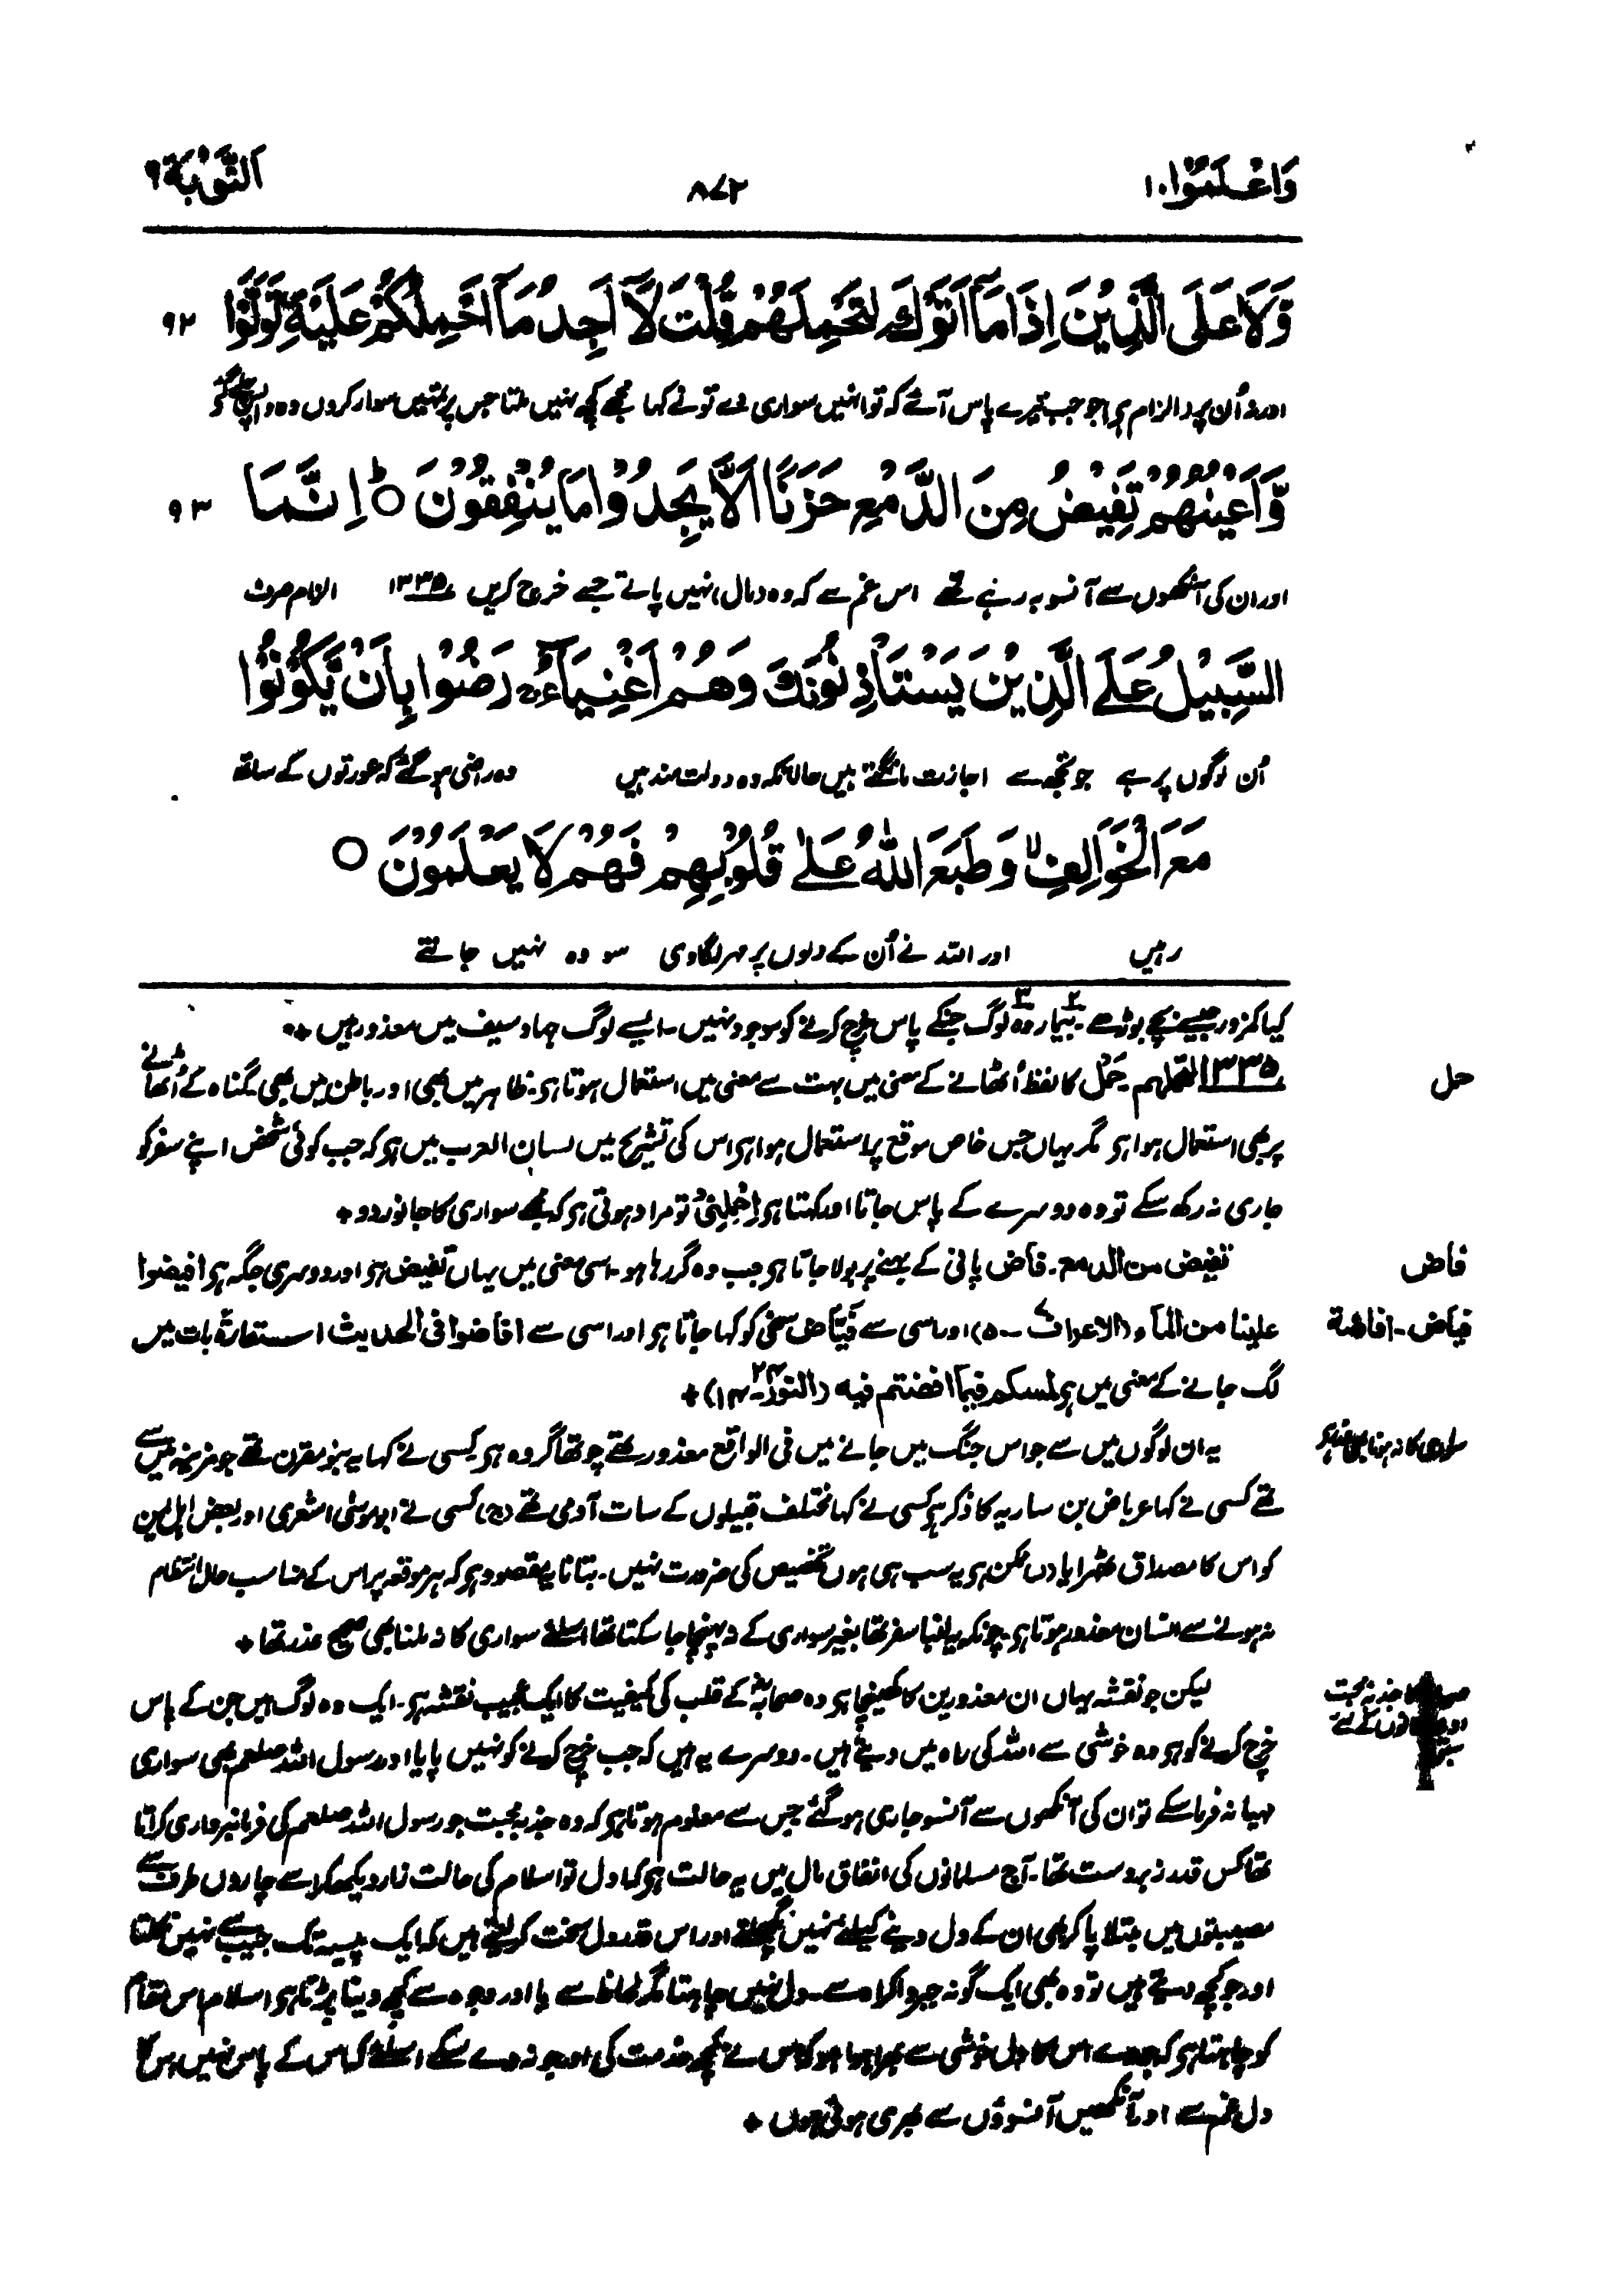 وَاعْلَمُوْٓا ۱۰
۸۷۲
اَلتَّوْبَة ۹
وَّلَا عَلَى الَّذِيْنَ اِذَا مَآ اَتَوْكَ لِتَحْمِلَهُمْ قُلْتَ لَآ اَجِدُ مَآ اَحْمِلُكُمْ عَلَيْهِ تَوَلَّوْا
۹۲
اور نہ اُن پر (الزام ہی) جو جب تیرے پاس آئے کہ تو انہیں سواری دے تو نے کہا مجھے کچھ نہیں ملتا جس پر تمہیں سوار کروں وہ واپس چلے گئے
وَّاَعْيُنُهُمْ تَفِيْضُ مِنَ الدَّمْعِ حَزَنًا اَلَّا يَجِدُوْا مَا يُنْفِقُوْنَ ۝ اِنَّمَا
۹۳
اور ان کی آنکھوں سے آنسو بہ رہے تھے اس غم سے کہ وہ (مال) نہیں پاتے جسے خرچ کریں ۱۳۳۵ الزام صرف
السَّبِيْلُ عَلَى الَّذِيْنَ يَسْتَاْذِنُوْنَكَ وَهُمْ اَغْنِيَآءُ ۚ رَضُوْا بِاَنْ يَّكُوْنُوْا
اُن لوگوں پر ہے جو تجھ سے اجازت مانگتے ہیں حالانکہ وہ دولت مند ہیں وہ راضی ہو گئے کہ عورتوں کے ساتھ
مَعَ الْخَوَالِفِ ۙ وَطَبَعَ اللّٰهُ عَلٰى قُلُوْبِهِمْ فَهُمْ لَا يَعْلَمُوْنَ ۝
رہیں اور اللہ نے اُن کے دلوں پر مہر لگا دی سو وہ نہیں جانتے
کیا کمزور جیسے بچے بوڑھے۔ ۲ بیمار ۳ وہ لوگ جنکے پاس خرچ کرنے کو موجود نہیں۔ ایسے لوگ جہاد سیف میں معذور ہیں +
۱۳۳۵ لتحملهم۔ حَمْل کا لفظ اُٹھانے کے معنی میں بہت سے معنی میں استعمال ہوتا ہی۔ ظاہر میں بھی اور باطن میں بھی۔ گناہ کے اُٹھانے
حمل
پر بھی استعمال ہوا ہی مگر یہاں جس خاص موقع پر استعمال ہوا ہی اس کی تشریح میں لسان العرب میں ہی کہ جب کوئی شخص اپنے سفر کو
جاری نہ رکھ سکے تو وہ دوسرے کے پاس جاتا اور کہتا ہی اِحْمِلْنِیْ تو مراد ہوتی ہی کہ مجھے سواری کا جانور دو +
تفیض من الدمع۔ فاض پانی کے بہنے پر بولا جاتا ہی جب وہ گر رہا ہو۔ اسی معنی میں یہاں تفیض ہی اور دوسری جگہ ہی افیضوا
فاض
علینا من المآء (الاعراف ۷۔۵۰) اور اسی سے فیّاض سخی کو کہا جاتا ہی اور اسی سے افاضوا فی الحدیث استعارۃً بات میں
فیاض۔ افاضة
لگ جانے کے معنی میں ہی لمسکم فیما افضتم فیه (النور ۲۴۔۱۴) +
یہ ان لوگوں میں سے جو اس جنگ میں جانے میں فی الواقع معذور تھے چوتھا گروہ ہی۔ کسی نے کہا یہ بنو مقرن تھے جو مزینہ میں سے
تھے کسی نے کہا عرباض بن ساریہ کا ذکر ہی کسی نے کہا مختلف قبیلوں کے سات آدمی تھے (ج) کسی نے ابو موسیٰ اشعری اور بعض اہل یمن
کو اس کا مصداق ٹھہرایا (د) ممکن ہی یہ سب ہی ہوں تخصیص کی ضرورت نہیں۔ بتانا یہ مقصود ہی کہ ہر موقعہ پر اس کے مناسب حال انتظام
نہ ہونے سے انسان معذور ہوتا ہی۔ چونکہ یہ لنبا سفر تھا بغیر سواری کے نہ پہنچا جا سکتا تھا اسلئے سواری کا نہ ملنا بھی صحیح عذر تھا +
لیکن جو نقشہ یہاں ان معذورین کا کھینچا ہی وہ صحابہؓ کے قلب کی کیفیت کا ایک عجیب نقشہ ہی۔ ایک وہ لوگ ہیں جن کے پاس
جذبہ محبت
خرچ کرنے کو ہی وہ خوشی سے اللہ کی راہ میں دیتے ہیں۔ دوسرے یہ ہیں کہ جب خرچ کرنے کو نہیں پایا اور رسول اللہ صلعم بھی سواری
مہیا نہ فرما سکے تو ان کی آنکھوں سے آنسو جاری ہو گئے جس سے معلوم ہوتا ہی کہ وہ جذبہ محبت جو رسول اللہ صلعم کی فرمانبرداری کراتا
تھا کس قدر زبردست تھا۔ آج مسلمانوں کی انفاق مال میں یہ حالت ہی کہ اول تو اسلام کی حالت زار دیکھکر اسے چاروں طرف سے
مصیبتوں میں مبتلا پا کر بھی ان کے دل دینے کیلئے نہیں پگھلتے اور اس قدر دل سخت کر لیتے ہیں کہ ایک پیسہ تک جیب سے نہیں نکلتا
اور جو کچھ دیتے ہیں تو وہ بھی ایک گونہ جبر و اکراہ سے۔ دل نہیں چاہتا مگر لحاظ سے یا اور وجوہ سے کچھ دینا پڑتا ہی اسلام اس مقام
کو چاہتا ہی کہ جو دے اس کا دل خوشی سے بھرا ہوا ہو کہ اس نے کچھ خدمت کی اور جو نہ دے سکے اسلئے کہ اس کے پاس نہیں اس کا
دل غم سے اور آنکھیں آنسوؤں سے بھری ہوئی ہوں +